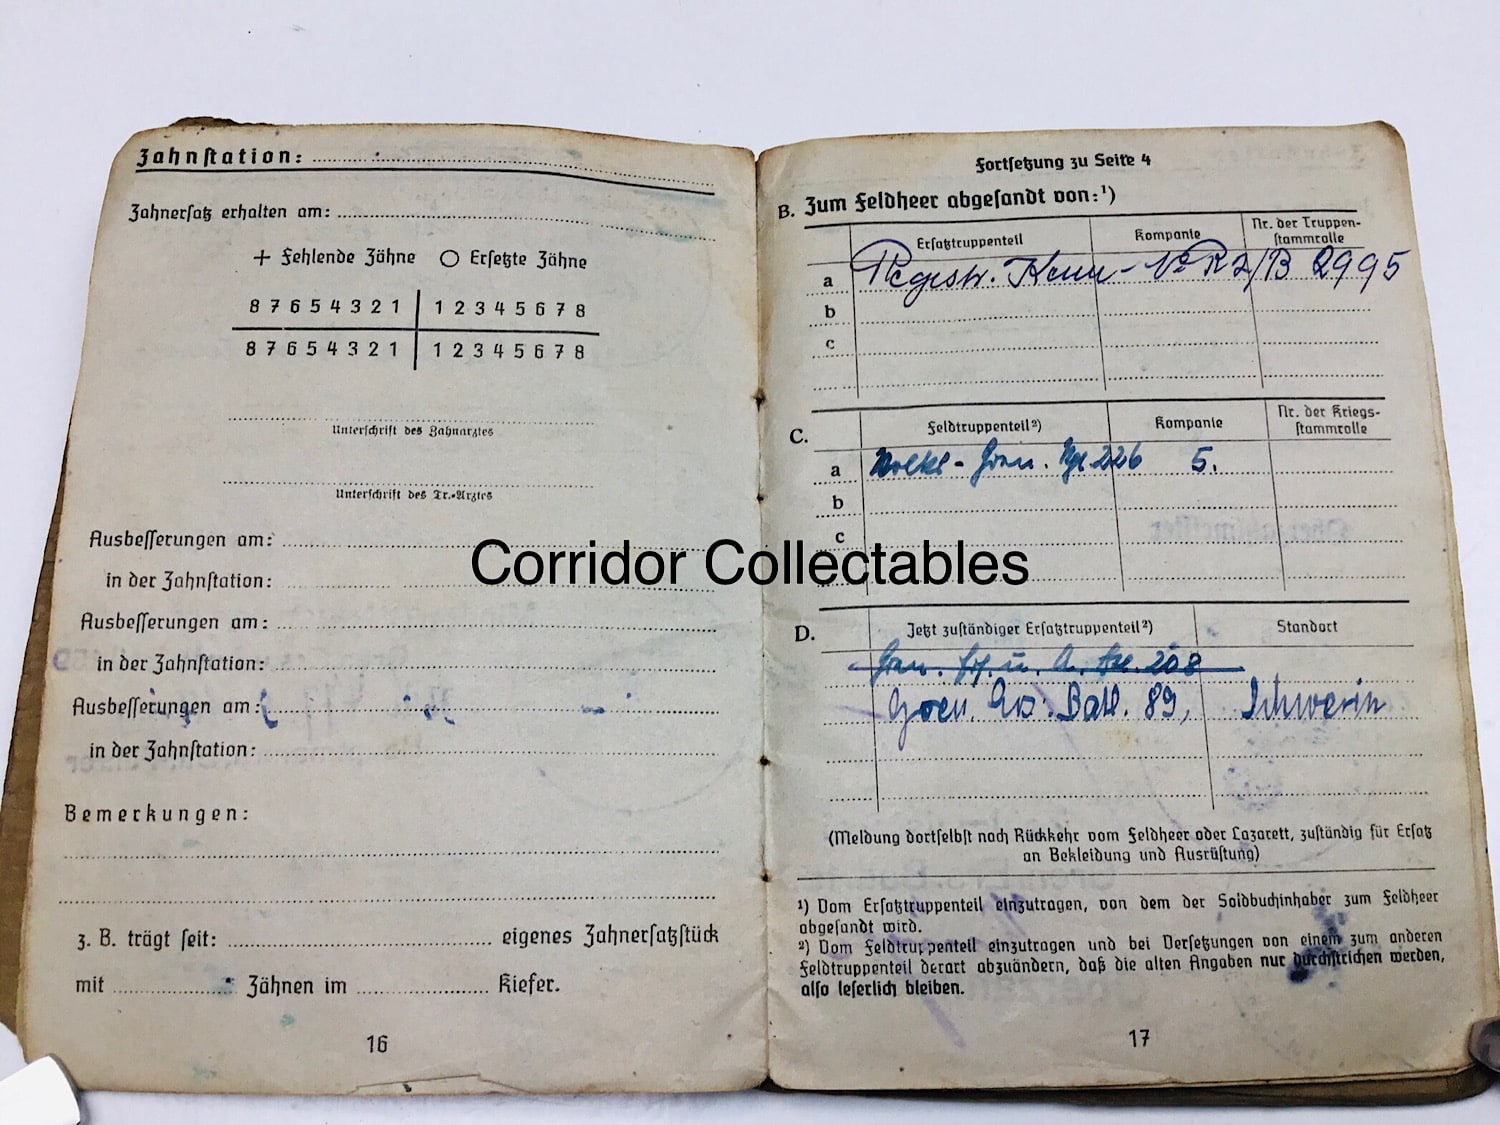 Zahnstation:
Zahnersatz erhalten am:
+ Fehlende Zähne O Ersetzte Zähne
8 7 6 5 4 3 2 1 1 2 3 4 5 6 7 8
8 7 6 5 4 3 2 1 1 2 3 4 5 6 7 8
Unterschrift des Zahnarztes
Unterschrift des Tr.-Arztes
Ausbesserungen am:
in der Zahnstation:
Ausbesserungen am:
in der Zahnstation:
Ausbesserungen am:
in der Zahnstation:
Bemerkungen:
z. B. trägt seit: eigenes Zahnersatzstück
mit Zähnen im Kiefer.
16
Fortsetzung zu Seite 4
B. Zum Feldheer abgesandt von:¹)
Ersatztruppenteil Kompanie Nr. der Truppen-
stammrolle
a Registr. Kenn-No R2/B 2995
b
c
C. Feldtruppenteil²) Kompanie Nr. der Kriegs-
stammrolle
a Gren. Rgt. 226 5.
b
c
D. Jetzt zuständiger Ersatztruppenteil²) Standort
Gren. 208
Gren. Ers. Batl. 89, Schwerin
(Meldung dortselbst nach Rückkehr vom Feldheer oder Lazarett, zuständig für Ersatz
an Bekleidung und Ausrüstung)
¹) Vom Ersatztruppenteil einzutragen, von dem der Soldbuchinhaber zum Feldheer
abgesandt wird.
²) Vom Feldtruppenteil einzutragen und bei Versetzungen von einem zum anderen
Feldtruppenteil derart abzuändern, daß die alten Angaben nur durchstrichen werden,
also leserlich bleiben.
17
Corridor Collectables